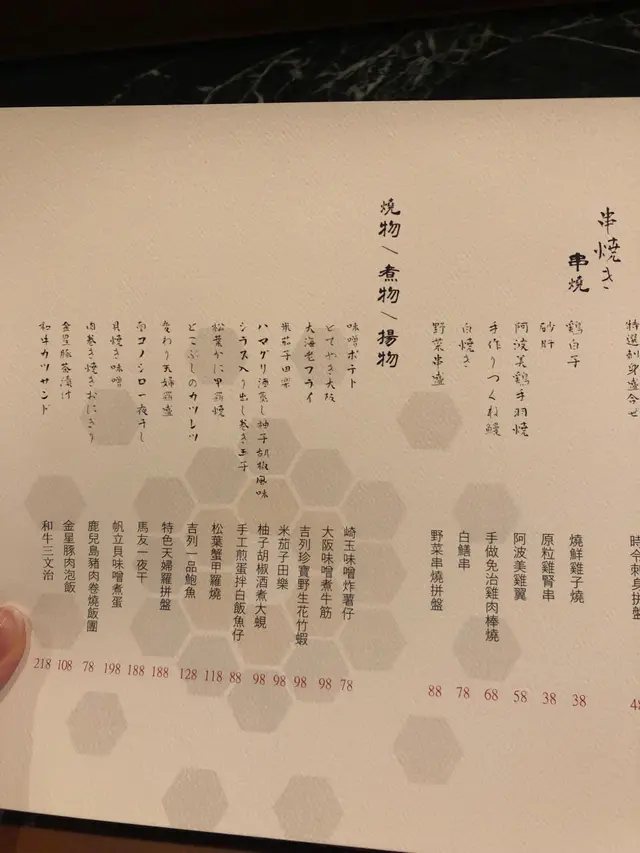 特選刺身盛合せ
時令刺身拼盤
48
串焼き
串燒
鶏白子
燒鮮雞子燒
38
砂肝
原粒雞腎串
38
阿波美鶏手羽焼
阿波美雞翼
58
手作りつくね鰻
手做免治雞肉棒燒
68
白焼き
白鱔串
78
野菜串盛
野菜串燒拼盤
88
燒物/煮物/揚物
味噌ポテト
崎玉味噌炸薯仔
78
どてやき大阪
大阪味噌煮牛筋
98
大海老フライ
吉列珍寶野生花竹蝦
98
米茄子田楽
米茄子田樂
98
ハマグリ酒蒸し柚子胡椒風味
柚子胡椒酒煮大蜆
98
シラス入り出し巻き玉子
手工煎蛋拌白飯魚仔
88
松葉かに甲羅焼
松葉蟹甲羅燒
118
とこぶしのカツレツ
吉列一品鮑魚
128
変わり天婦羅盛
特色天婦羅拼盤
188
南コノシロ一夜干し
馬友一夜干
188
貝焼き味噌
帆立貝味噌煮蛋
198
肉巻き焼きおにぎり
鹿兒島豬肉卷燒飯團
78
金星豚茶漬け
金星豚肉泡飯
108
和牛カツサンド
和牛三文治
218